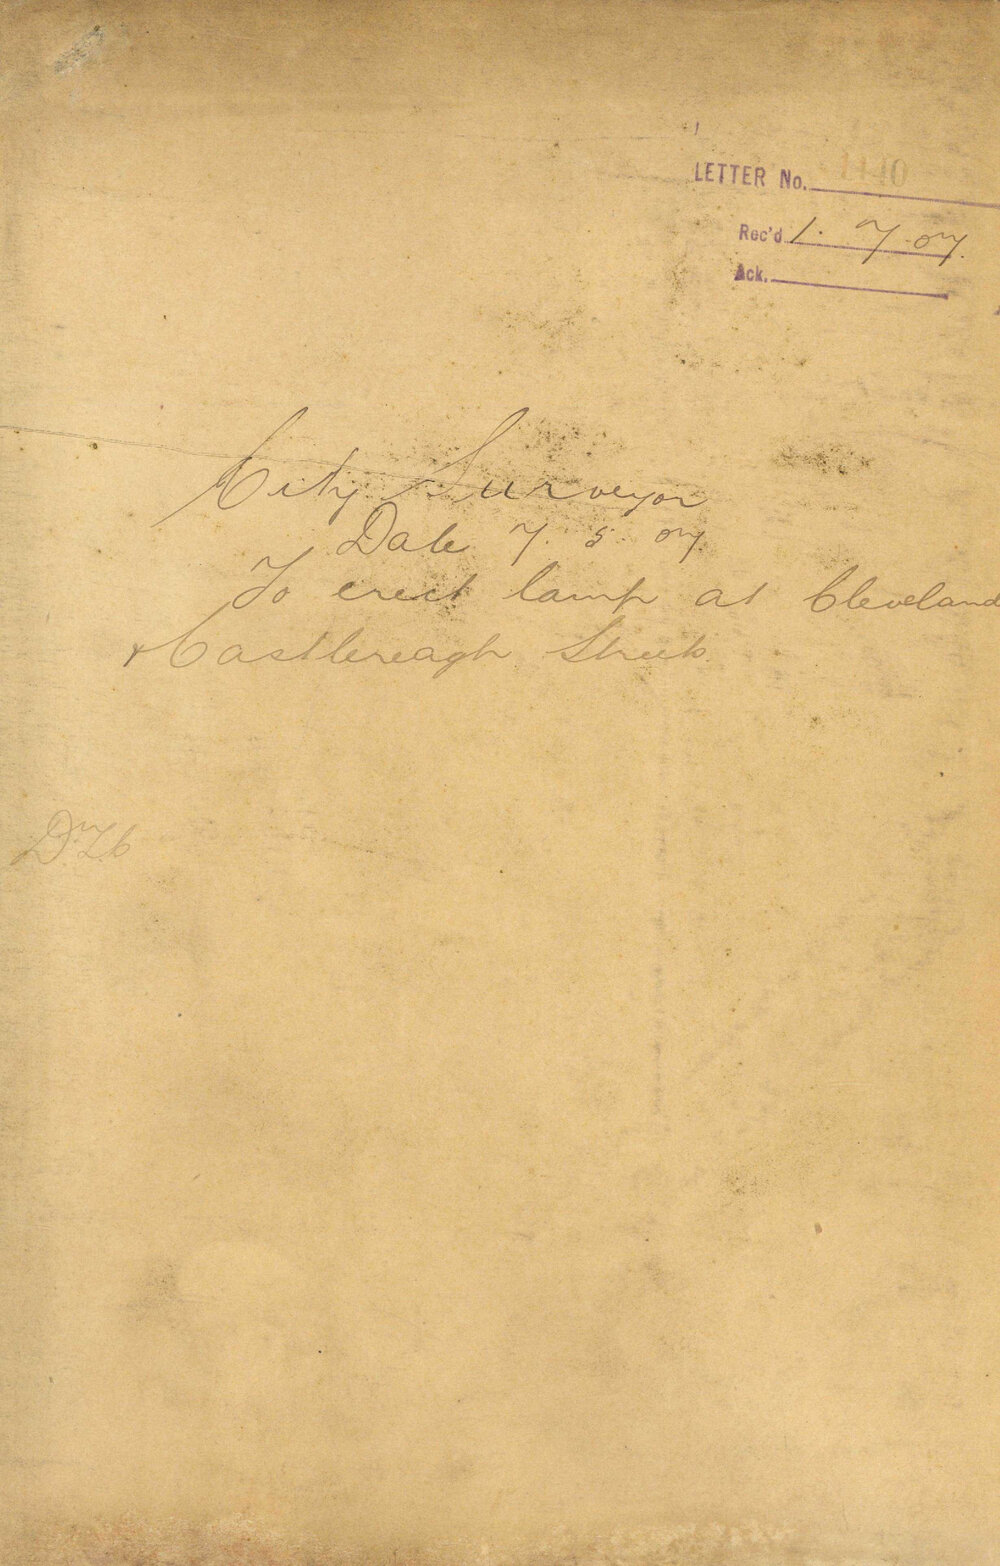 LETTER No. 1110
Rec'd 1. 7. 07.
Ack.
City Surveyor
Date 7. 5. 07.
To erect lamp at Cleveland
& Castlereagh Streets